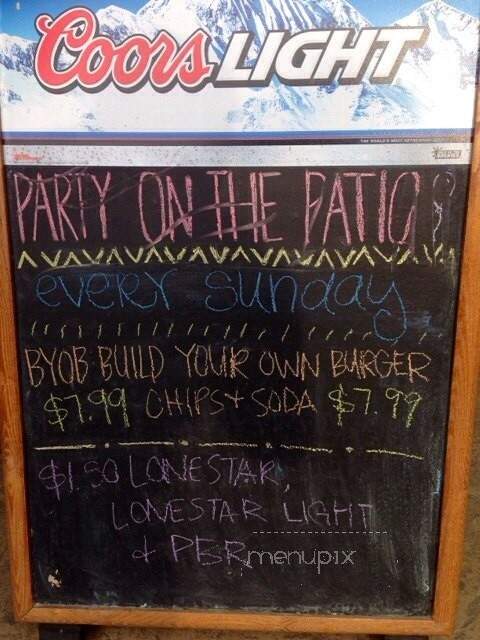 Coors LIGHT
PARTY ON THE PATIO!
every sunday
BYOB BUILD YOUR OWN BURGER
$7.99 CHIPS + SODA $7.99
$1.50 LONESTAR,
LONESTAR LIGHT
+ PBR
menupix